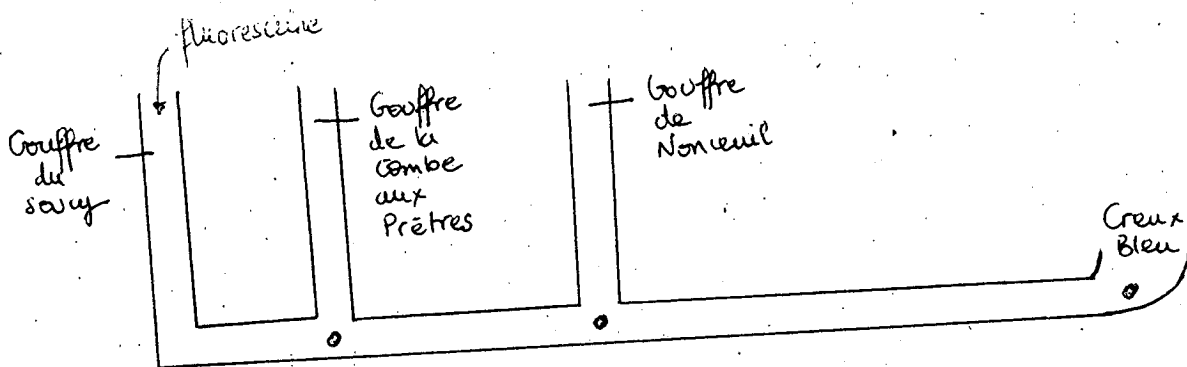 fluoresceine
Gouffre
du
Soucy
Gouffre
de la
Combe
aux
Prêtres
Gouffre
de
Nonceuil
Creux
Bleu